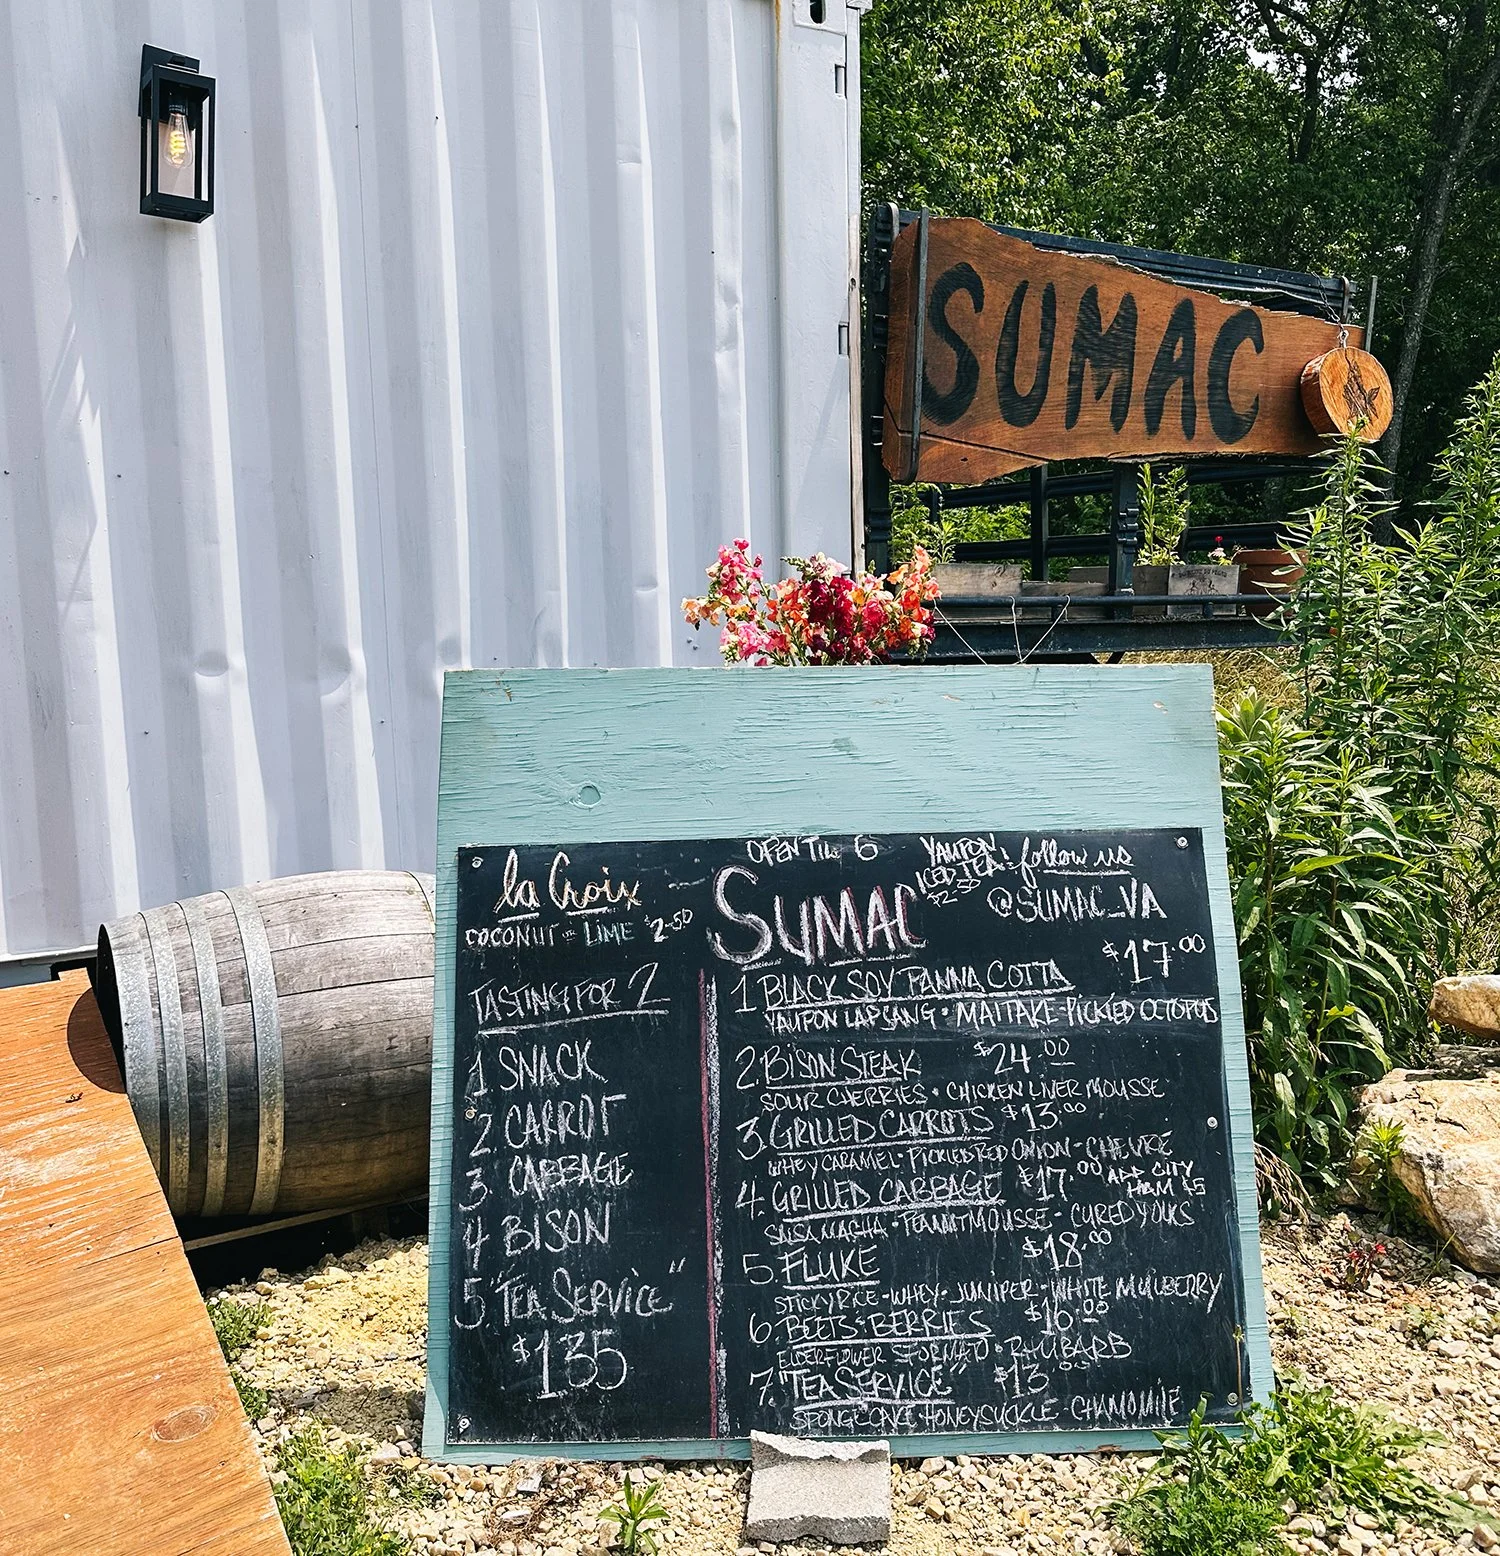 SUMAC
OPEN TILL 6
YAUPON
ICED TEA!
$2.50
follow us
@SUMAC_VA
la Croix
COCONUT OR LIME $2.50
SUMAC
TASTING FOR 2
1. SNACK
2. CARROT
3. CABBAGE
4. BISON
5 "TEA SERVICE"
$135
1. BLACK SOY PANNA COTTA $17.00
YAUPON LAPSANG • MAITAKE • PICKLED OCTOPUS
2. BISON STEAK $24.00
SOUR CHERRIES • CHICKEN LIVER MOUSSE
3. GRILLED CARROTS $13.00
WHEY CARAMEL • PICKLED RED ONION • CHEVRE
4. GRILLED CABBAGE $17.00 ADD CITY
HAM $5
SALSA MACHA • PEANUT MOUSSE • CURED YOLKS
5. FLUKE $18.00
STICKY RICE • WHEY • JUNIPER • WHITE MULBERRY
6. BEETS • BERRIES $16.00
ELDERFLOWER SFORMATO • RHUBARB
7. "TEA SERVICE" $13.00
SPONGECAKE HONEYSUCKLE • CHAMOMILE